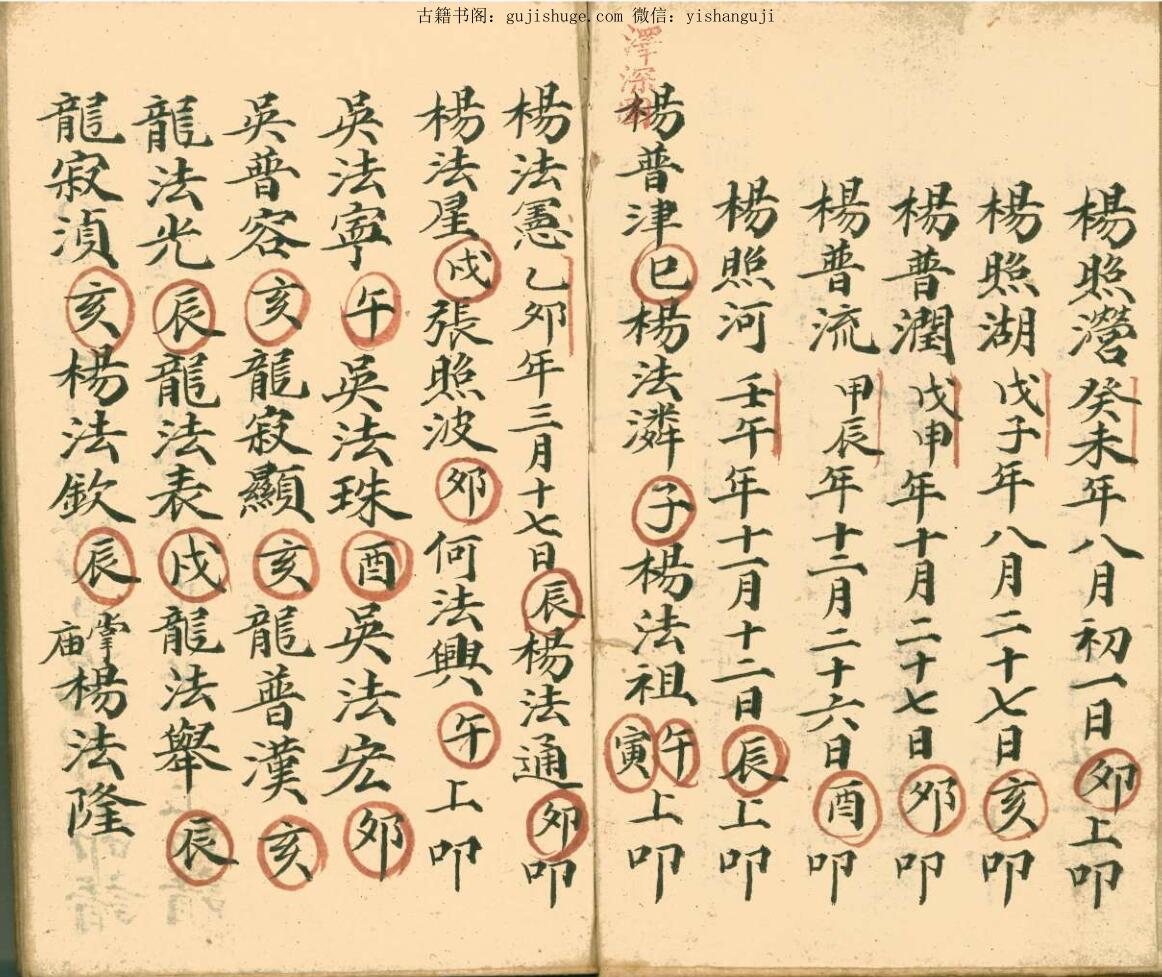 古籍书阁：gujishuge.com 微信：yishanguji
楊照瀯癸未年八月初一日卯上叩
楊照湖戊子年八月二十七日亥叩
楊普潤戊申年十月二十七日卯叩
楊普流甲辰年十二月二十六日酉叩
楊照河壬午年十一月十二日辰上叩
澤深
楊普津巳楊法潾子楊法祖午寅上叩
楊法憲乙卯年三月十七日辰楊法通卯叩
楊法星戌張照波卯何法興午上叩
吳法寧午吳法珠酉吳法宏卯
吳普容亥龍寂顯亥龍普漢亥
龍法光辰龍法表戌龍法舉辰
龍寂湞亥楊法欽辰掌庙楊法隆